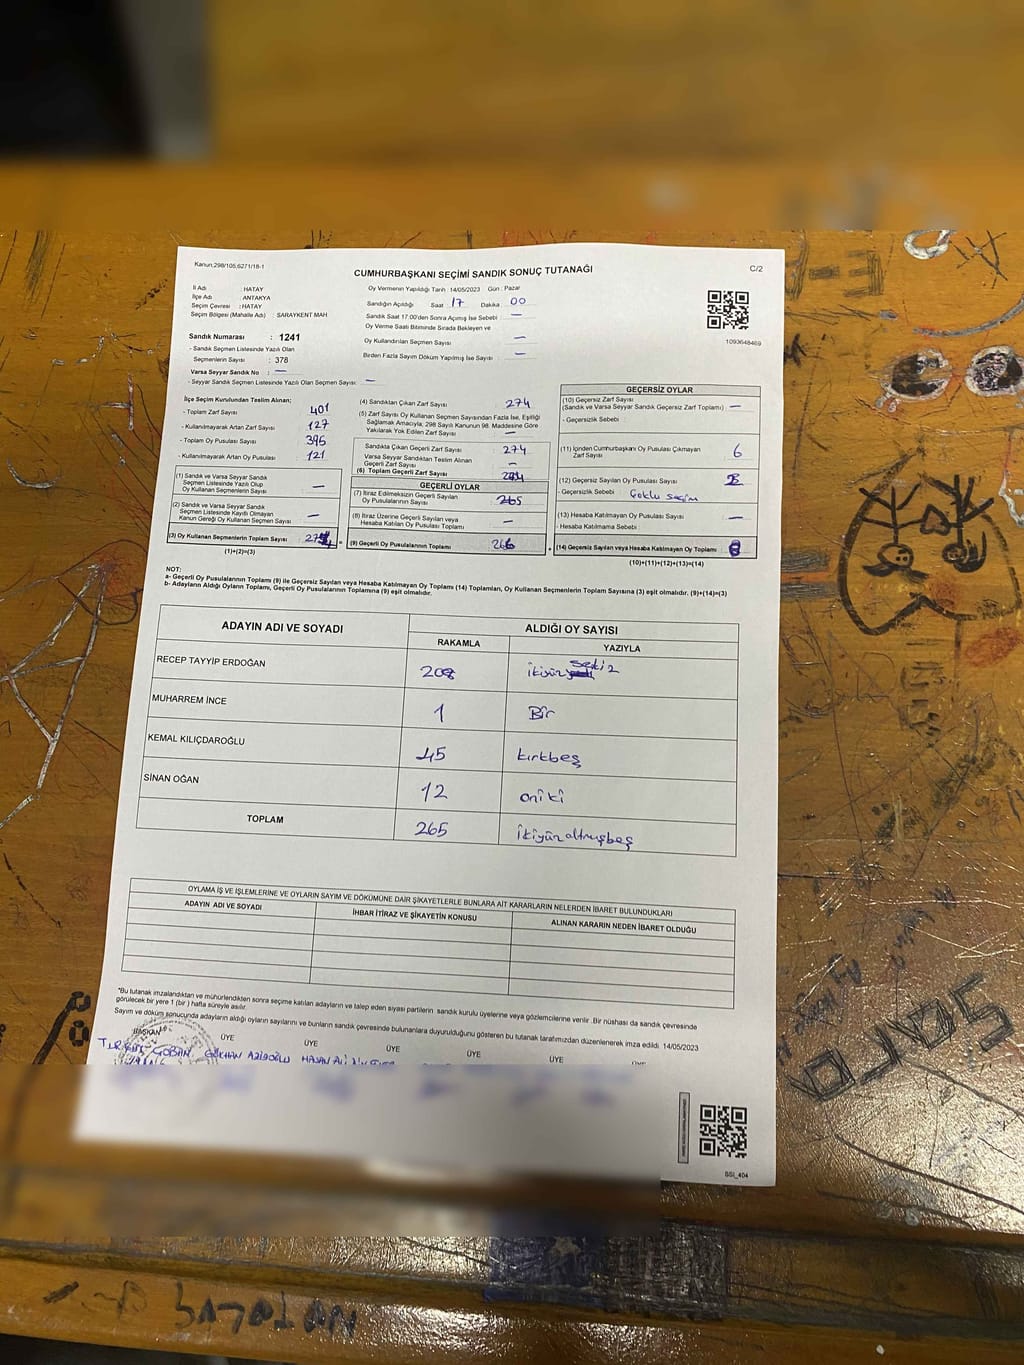 Kanun;298/105,6271/18-1
CUMHURBAŞKANI SEÇİMİ SANDIK SONUÇ TUTANAĞI
C/2
İl Adı : HATAY
İlçe Adı : ANTAKYA
Seçim Çevresi : HATAY
Seçim Bölgesi (Mahalle Adı) : SARAYKENT MAH
Sandık Numarası : 1241
- Sandık Seçmen Listesinde Yazılı Olan
Seçmenlerin Sayısı : 378
Varsa Seyyar Sandık No : —
- Seyyar Sandık Seçmen Listesinde Yazılı Olan Seçmen Sayısı: —
Oy Vermenin Yapıldığı Tarih :14/05/2023 Gün : Pazar
Sandığın Açıldığı Saat 17 Dakika 00
Sandık Saat 17.00'den Sonra Açımış İse Sebebi —
Oy Verme Saati Bitiminde Sırada Bekleyen ve
Oy Kullandırılan Seçmen Sayısı —
Birden Fazla Sayım Döküm Yapılmış İse Sayısı —
1093648469
İlçe Seçim Kurulundan Teslim Alınan;
- Toplam Zarf Sayısı 401
- Kullanılmayarak Artan Zarf Sayısı 127
- Toplam Oy Pusulası Sayısı 395
- Kullanılmayarak Artan Oy Pusulası 121
(1) Sandık ve Varsa Seyyar Sandık
Seçmen Listesinde Yazılı Olup
Oy Kullanan Seçmenlerin Sayısı —
(2) Sandık ve Varsa Seyyar Sandık
Seçmen Listesinde Kayıtlı Olmayan
Kanun Gereği Oy Kullanan Seçmen Sayısı —
(3) Oy Kullanan Seçmenlerin Toplam Sayısı
(1)+(2)=(3)
(4) Sandıktan Çıkan Zarf Sayısı 274
(5) Zarf Sayısı Oy Kullanan Seçmen Sayısından Fazla İse, Eşitliği
Sağlamak Amacıyla; 298 Sayılı Kanunun 98. Maddesine Göre
Yakılarak Yok Edilen Zarf Sayısı —
Sandıkta Çıkan Geçerli Zarf Sayısı 274
Varsa Seyyar Sandıktan Teslim Alınan
Geçerli Zarf Sayısı —
(6) Toplam Geçerli Zarf Sayısı
GEÇERLİ OYLAR
(7) İtiraz Edilmeksizin Geçerli Sayılan
Oy Pusulalarının Sayısı 265
(8) İtiraz Üzerine Geçerli Sayılan veya
Hesaba Katılan Oy Pusulası Toplamı —
(9) Geçerli Oy Pusulalarının Toplamı 266
GEÇERSİZ OYLAR
(10) Geçersiz Zarf Sayısı
(Sandık ve Varsa Seyyar Sandık Geçersiz Zarf Toplamı) —
- Geçersizlik Sebebi :
(11) İçinden Cumhurbaşkanı Oy Pusulası Çıkmayan
Zarf Sayısı 6
(12) Geçersiz Sayılan Oy Pusulası Sayısı
- Geçersizlik Sebebi Çoklu seçim
(13) Hesaba Katılmayan Oy Pusulası Sayısı —
- Hesaba Katılmama Sebebi :
(14) Geçersiz Sayılan veya Hesaba Katılmayan Oy Toplamı
(10)+(11)+(12)+(13)=(14)
NOT:
a- Geçerli Oy Pusulalarının Toplamı (9) ile Geçersiz Sayılan veya Hesaba Katılmayan Oy Toplamı (14) Toplamları, Oy Kullanan Seçmenlerin Toplam Sayısına (3) eşit olmalıdır. (9)+(14)=(3)
b- Adayların Aldığı Oyların Toplamı, Geçerli Oy Pusulalarının Toplamına (9) eşit olmalıdır.
ADAYIN ADI VE SOYADI ALDIĞI OY SAYISI
RAKAMLA YAZIYLA
RECEP TAYYİP ERDOĞAN 208 ikiyüz sekiz
MUHARREM İNCE 1 Bir
KEMAL KILIÇDAROĞLU 45 kırkbeş
SİNAN OĞAN 12 oniki
TOPLAM 265 ikiyüzaltmışbeş
OYLAMA İŞ VE İŞLEMLERİNE VE OYLARIN SAYIM VE DÖKÜMÜNE DAİR ŞİKAYETLERLE BUNLARA AİT KARARLARIN NELERDEN İBARET BULUNDUKLARI
ADAYIN ADI VE SOYADI İHBAR İTİRAZ VE ŞİKAYETİN KONUSU ALINAN KARARIN NEDEN İBARET OLDUĞU
*Bu tutanak imzalandıktan ve mühürlendikten sonra seçime katılan adayların ve talep eden siyasi partilerin sandık kurulu üyelerine veya gözlemcilerine verilir .Bir nüshası da sandık çevresinde
görülecek bir yere 1 (bir ) hafta süreyle asılır.
Sayım ve döküm sonucunda adayların aldığı oyların sayılarını ve bunların sandık çevresinde bulunanlara duyurulduğunu gösteren bu tutanak tarafımızdan düzenlenerek imza edildi. 14/05/2023
BAŞKAN ÜYE ÜYE ÜYE ÜYE ÜYE ÜYE
ÇOBAN GÖKHAN AZİZOĞLU HASAN ALİ
SSI_404